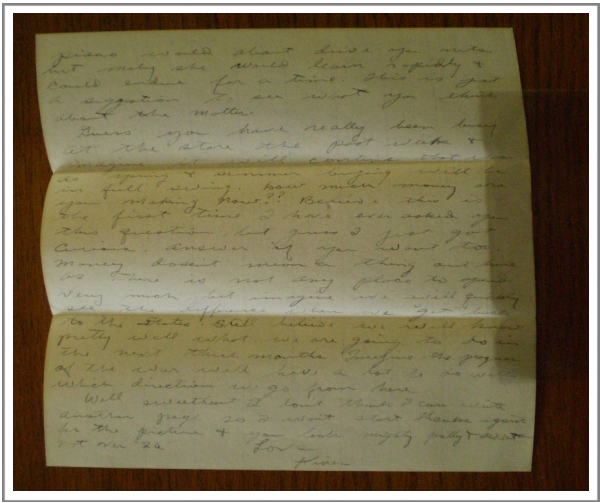 would about drive you nuts
but maybe she would learn rapidly &
could endure for a time. This is just
a suggestion to see what you think
about the matter.
Guess you have really been busy
at the store the past week &
imagine it will continue that way
as spring & summer buying will be
in full swing. How much money are
you making now?? Believe this is
the first time I have ever asked you
this question, but guess I just got
curious. Answer if you want to.
Money doesn't mean a thing out here
as there is not any place to spend
very much but imagine we will quickly
see the difference when we get back
to the States. Still believe we will know
pretty well what we are going to do in
the next three months. Imagine the progress
of the war will have a lot to do with
which direction we go from here.
Well sweetheart I don't think I can write
another page so I won't start. Thanks again
for the picture & you look mighty pretty & sweet
not over 20.
Love